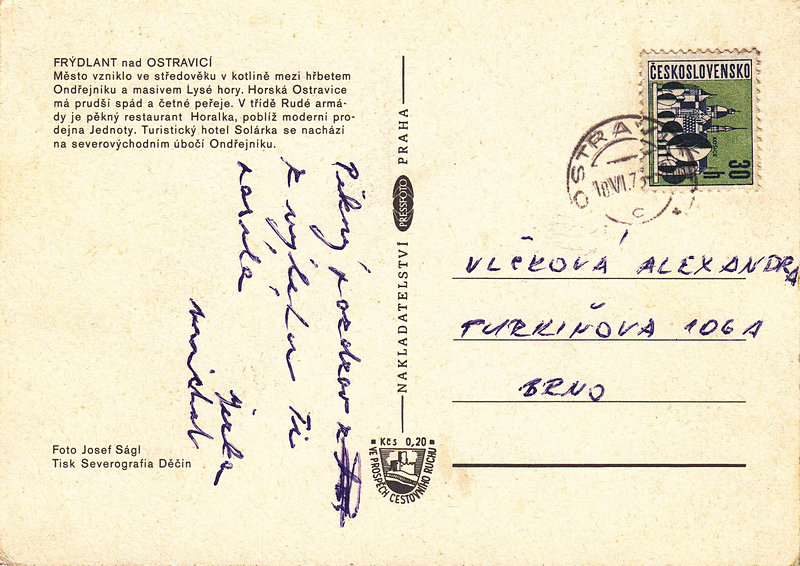 FRÝDLANT nad OSTRAVICÍ
Město vzniklo ve středověku v kotlině mezi hřbetem
Ondřejníku a masivem Lysé hory. Horská Ostravice
má prudší spád a četné peřeje. V třídě Rudé armá-
dy je pěkný restaurant Horalka, poblíž moderní pro-
dejna Jednoty. Turistický hotel Solárka se nachází
na severovýchodním úbočí Ondřejníku.
Pěkný pozdrav z
z výletu Ti
Jirka
Foto Josef Ságl
Tisk Severografia Děčín
NAKLADATELSTVÍ PRESSFOTO PRAHA
Kčs 0,20
VE PROSPĚCH CESTOVNÍHO RUCHU
ČESKOSLOVENSKO
30
h
OSTRAVA
18.VI.73
c
VLČKOVÁ ALEXANDRA
TURKIŇOVA 106A
BRNO